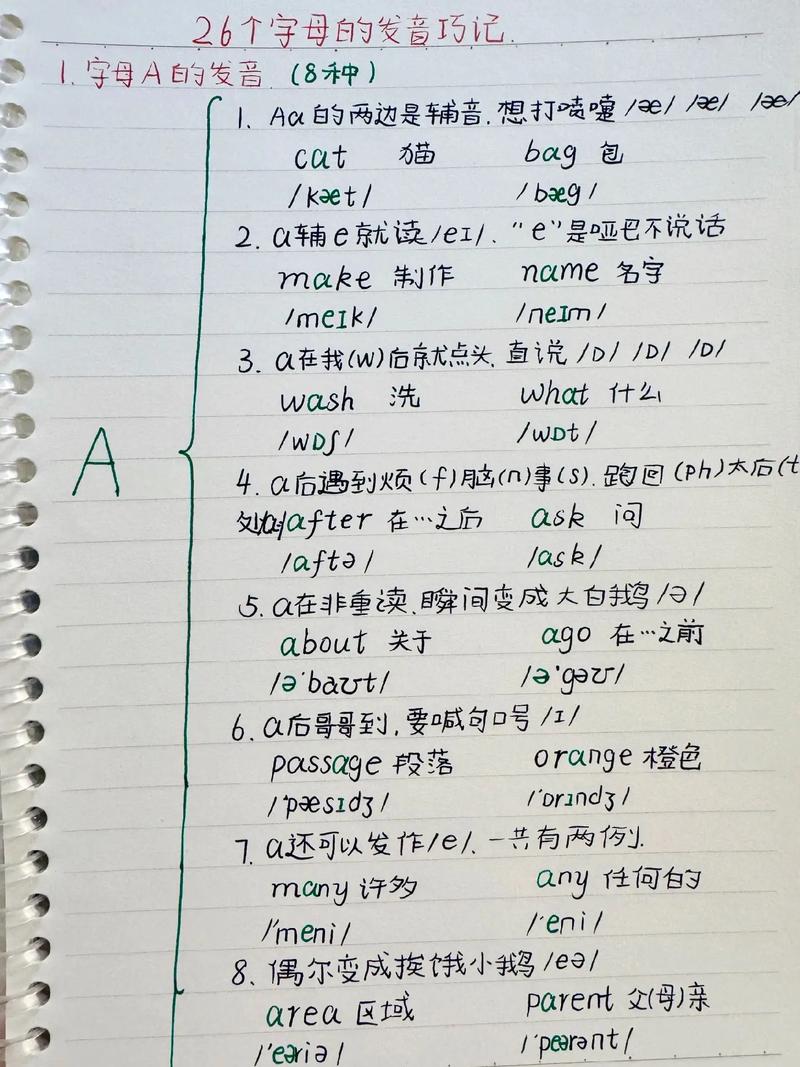 26个字母的发音巧记.
1. 字母A的发音.(8种)
A
1. Aa的两边是辅音.想打喷嚏/æ/ /æ/ /æ/
cat 猫 bag 包
/kæt/ /bæg/
2. a辅e就读/eɪ/. "e"是哑巴不说话
make 制作 name 名字
/meɪk/ /neɪm/
3. a在我(w)后就点头.直说/ɒ/ /ɒ/ /ɒ/
wash 洗 what 什么
/wɒʃ/ /wɒt/
4. a后遇到烦(f)脑(n)事(s). 跑回(ph)太后(t
after 在…之后 ask 问
/aftə/ /ask/
5. a在非重读.瞬间变成大白鹅/ə/
about 关于 ago 在…之前
/ə'baʊt/ /ə'gəʊ/
6. a后哥哥到,要喊句口号/ɪ/
passage 段落 orange 橙色
/'pæsɪdʒ/ /'ɒrɪndʒ/
7. a还可以发作/e/.一共有两例.
many 许多 any 任何的
/'meni/ /'eni/
8. 偶尔变成挨饿小鹅/eə/
area 区域 parent 父(母)亲
/'eəriə/ /'peərənt/